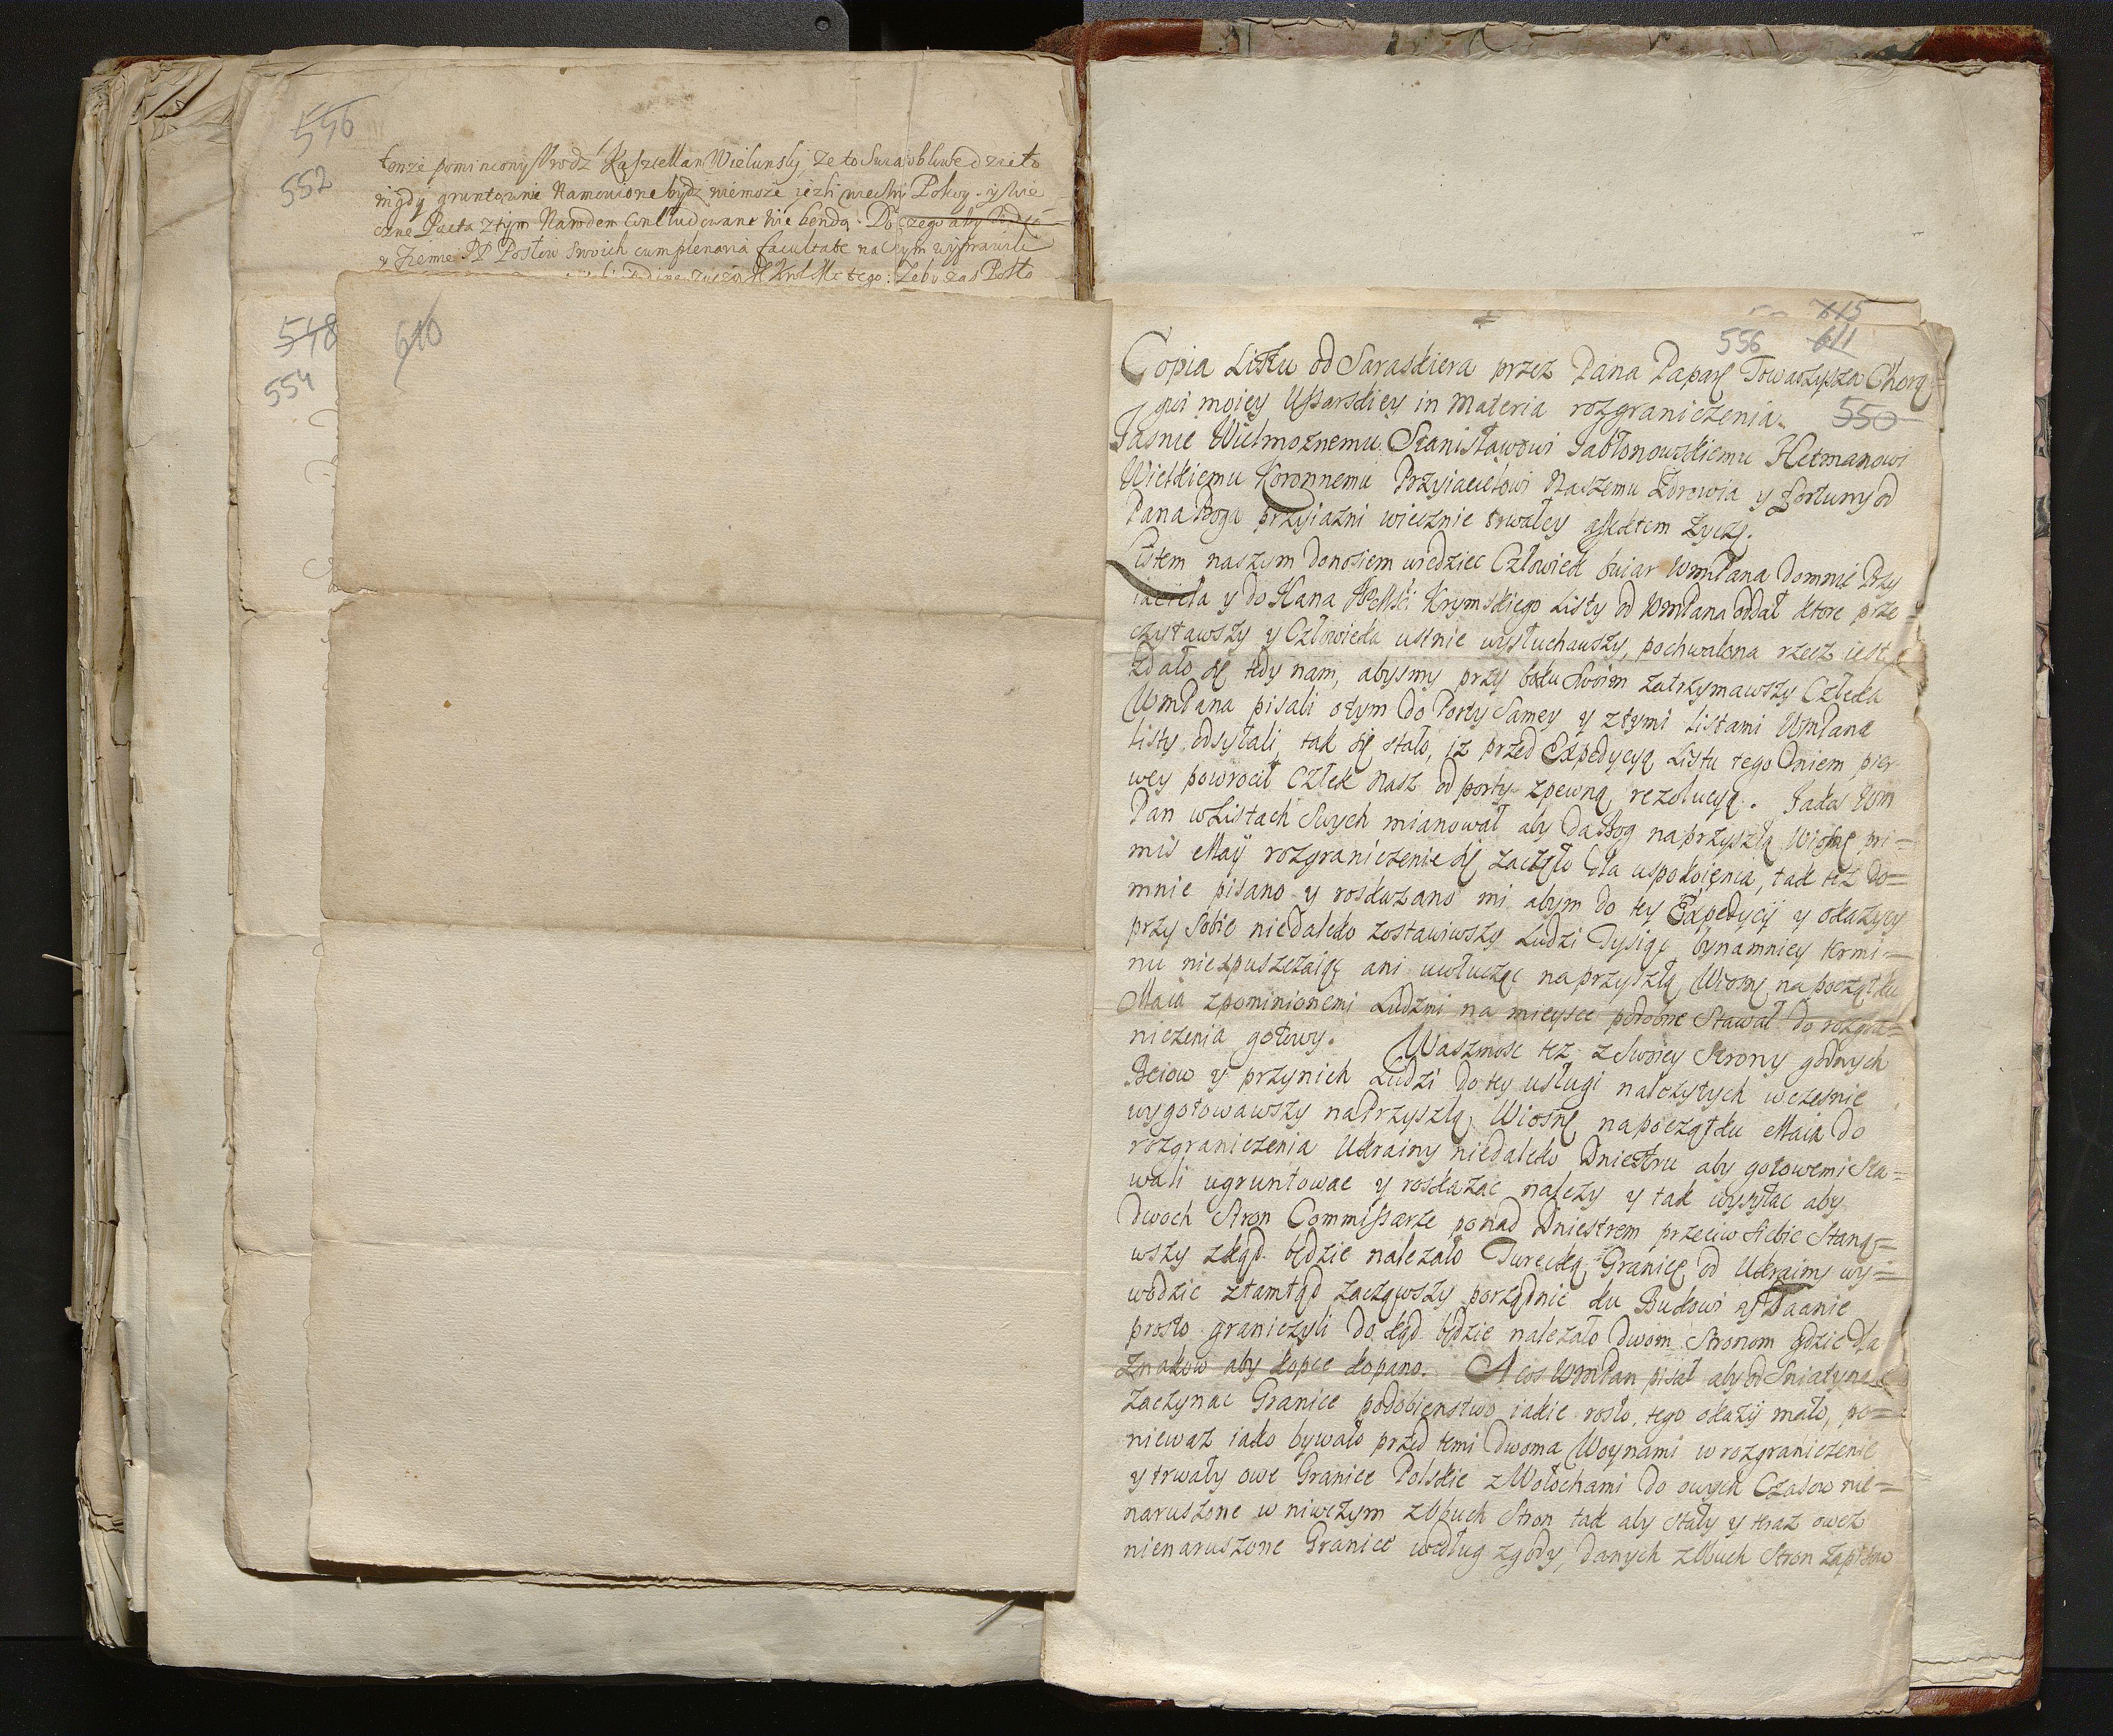 546
552
tenże pomieniony Urodz Kasztellan Wielunsky, ze to Swiątobliwe dzieło
nigdy gruntownie Namowione bydz niemoże jezli miedzy Polwy y
czne Pacta ztym Narodem Concludowane nie bendą. Do czego aby
y Ziemie PP Posłow swoich cum plenaria facultate na wyprawili
Zeby zas Posło
548
554
610
615
556 611
Copia Listu od Saraskiera przez Pana Paparę Towarzysza Chorą-
gwi moiey Ussarskiey in Materia rozgraniczenia.
550
Jasnie Wielmoznemu Stanisławowi Jabłonowskiemu Hetmanowi
Wielkiemu Koronnemu Przyiacielowi Naszemu Zdrowia y Fortuny od
Pana Boga przyiazni wiecznie trwałey affektem zyczę.
Listem naszym donosiem wiedziec Człowiek Wm Pana do mnie Przy
iaciela y do Hana Krymskiego Listy od WmPana oddał ktore prze=
czytawszy y Człowieka ustnie wysłuchawszy, pochwalona rzecz iest,
Zdało się tedy nam, abysmy przy boku Swoim zatrzymawszy Człeka
WmPana pisali otym do Porty Samey y ztymi Listami WmPana
Listy odsyłali, tak się stało, iz przed Expedycyą Listu tego Dniem pier
wey powrocił Człek Nasz od Porty zpewną rezolucyą. Jako Wm
Pan w Listach Swych mianował aby Da Bog na przyszłą Wiosnę pri=
mis Maij rozgraniczenie się zaczęło dla uspokoienia, tak tez do=
mnie pisano y roskazano mi abym do tey Expedycij y okazyey
przy Sobie niedaleko zostawiwszy Ludzi Tysiąc bynamniey termi=
nu niespuszczaiąc ani uwłucząc na przyszłą Wiosnę na początku
Maia zpominionemi Ludzmi na mieysce podobne Stawał do rozgra=
niczenia gotowy. Waszmosc tez z Swoiey Strony godnych
y przynich Ludzi do tey usługi nalezytych wczesnie
wygotowawszy na Przyszłą Wiosnę na początku Maia do
rozgraniczenia Ukrainy niedaleko Dniestru aby gotowemi Sta=
wali ugruntowac y roskazac nalezy y tak wysyłac aby
Dwoch Stron Commissarze ponad Dniestrem przeciw Siebie Staną=
wszy zkąd będzie nalezało Turecką Granicę od Ukrainy wy=
wodzic ztamtąd zacząwszy porządnie ku Bukowi
prosto graniczyli do kąd będzie nalezało dwom Stronom gdzie dla
Znakow aby kopce kopano. A cos WmPan pisał aby od Sniatyna
Zaczynac Granice podobienstwo iakie rosło, tego okazij mało, po=
niewaz iako bywało przed temi dwoma Woynami w rozgraniczenie
y trwały owe Granice Polskie z Wołochami do owych Czasow nie=
naruszone w niwczym z Obuch Stron tak aby stały y teraz owez
nienaruszone Granice według zgody, danych z Obuch Stron Zapisow